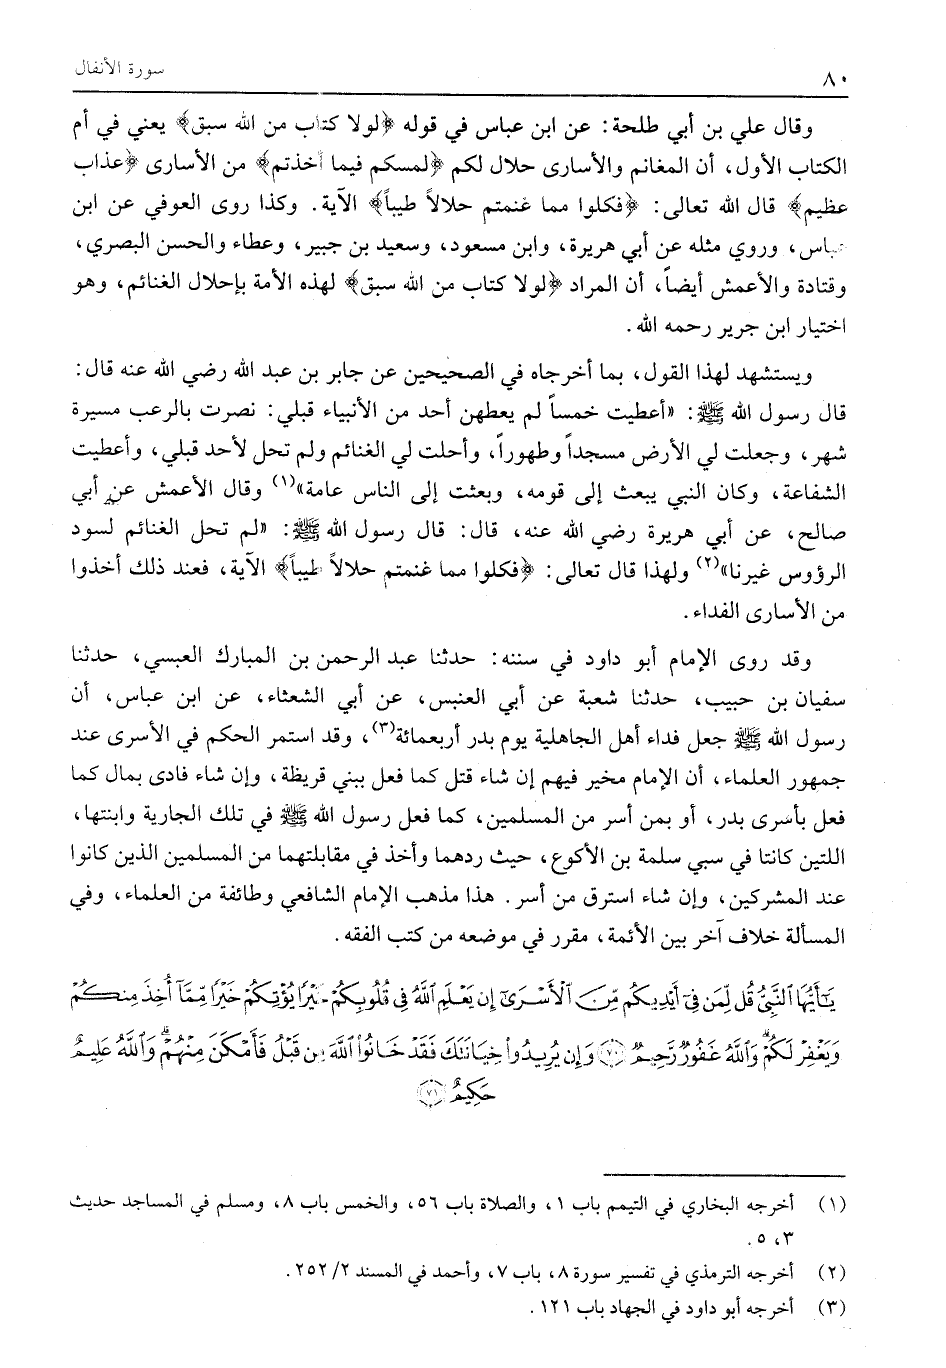 ٨٠
سورة الأنفال
وقال علي بن أبي طلحة: عن ابن عباس في قوله ﴿لولا كتاب من الله سبق﴾ يعني في أم
الكتاب الأول، أن المغانم والأسارى حلال لكم ﴿لمسكم فيما أخذتم﴾ من الأسارى ﴿عذاب
عظيم﴾ قال الله تعالى: ﴿فكلوا مما غنمتم حلالاً طيباً﴾ الآية. وكذا روى العوفي عن ابن
عباس، وروي مثله عن أبي هريرة، وابن مسعود، وسعيد بن جبير، وعطاء والحسن البصري،
وقتادة والأعمش أيضاً، أن المراد ﴿لولا كتاب من الله سبق﴾ لهذه الأمة بإحلال الغنائم، وهو
اختيار ابن جرير رحمه الله.
ويستشهد لهذا القول، بما أخرجاه في الصحيحين عن جابر بن عبد الله رضي الله عنه قال:
قال رسول الله ﷺ: «أعطيت خمساً لم يعطهن أحد من الأنبياء قبلي: نصرت بالرعب مسيرة
شهر، وجعلت لي الأرض مسجداً وطهوراً، وأحلت لي الغنائم ولم تحل لأحد قبلي، وأعطيت
الشفاعة، وكان النبي يبعث إلى قومه، وبعثت إلى الناس عامة»(١) وقال الأعمش عن أبي
صالح، عن أبي هريرة رضي الله عنه، قال: قال رسول الله ﷺ: «لم تحل الغنائم لسود
الرؤوس غيرنا»(٢) ولهذا قال تعالى: ﴿فكلوا مما غنمتم حلالاً طيباً﴾ الآية، فعند ذلك أخذوا
من الأسارى الفداء.
وقد روى الإمام أبو داود في سننه: حدثنا عبد الرحمن بن المبارك العبسي، حدثنا
سفيان بن حبيب، حدثنا شعبة عن أبي العنبس، عن أبي الشعثاء، عن ابن عباس، أن
رسول الله ﷺ جعل فداء أهل الجاهلية يوم بدر أربعمائة(٣)، وقد استمر الحكم في الأسرى عند
جمهور العلماء، أن الإمام مخير فيهم إن شاء قتل كما فعل ببني قريظة، وإن شاء فادى بمال كما
فعل بأسرى بدر، أو بمن أسر من المسلمين، كما فعل رسول الله ﷺ في تلك الجارية وابنتها،
اللتين كانتا في سبي سلمة بن الأكوع، حيث ردهما وأخذ في مقابلتهما من المسلمين الذين كانوا
عند المشركين، وإن شاء استرق من أسر. هذا مذهب الإمام الشافعي وطائفة من العلماء، وفي
المسألة خلاف آخر بين الأئمة، مقرر في موضعه من كتب الفقه.
يَٰٓأَيُّهَا ٱلنَّبِىُّ قُل لِّمَن فِىٓ أَيْدِيكُم مِّنَ ٱلْأَسْرَىٰٓ إِن يَعْلَمِ ٱللَّهُ فِى قُلُوبِكُمْ خَيْرًا يُؤْتِكُمْ خَيْرًا مِّمَّآ أُخِذَ مِنكُمْ
وَيَغْفِرْ لَكُمْ ۗ وَٱللَّهُ غَفُورٌ رَّحِيمٌ ﴿٧٠﴾ وَإِن يُرِيدُوا۟ خِيَانَتَكَ فَقَدْ خَانُوا۟ ٱللَّهَ مِن قَبْلُ فَأَمْكَنَ مِنْهُمْ ۗ وَٱللَّهُ عَلِيمٌ
حَكِيمٌ ﴿٧١﴾
(١) أخرجه البخاري في التيمم باب ١، والصلاة باب ٥٦، والخمس باب ٨، ومسلم في المساجد حديث
٣، ٥.
(٢) أخرجه الترمذي في تفسير سورة ٨، باب ٧، وأحمد في المسند ٢/ ٢٥٢.
(٣) أخرجه أبو داود في الجهاد باب ١٢١.